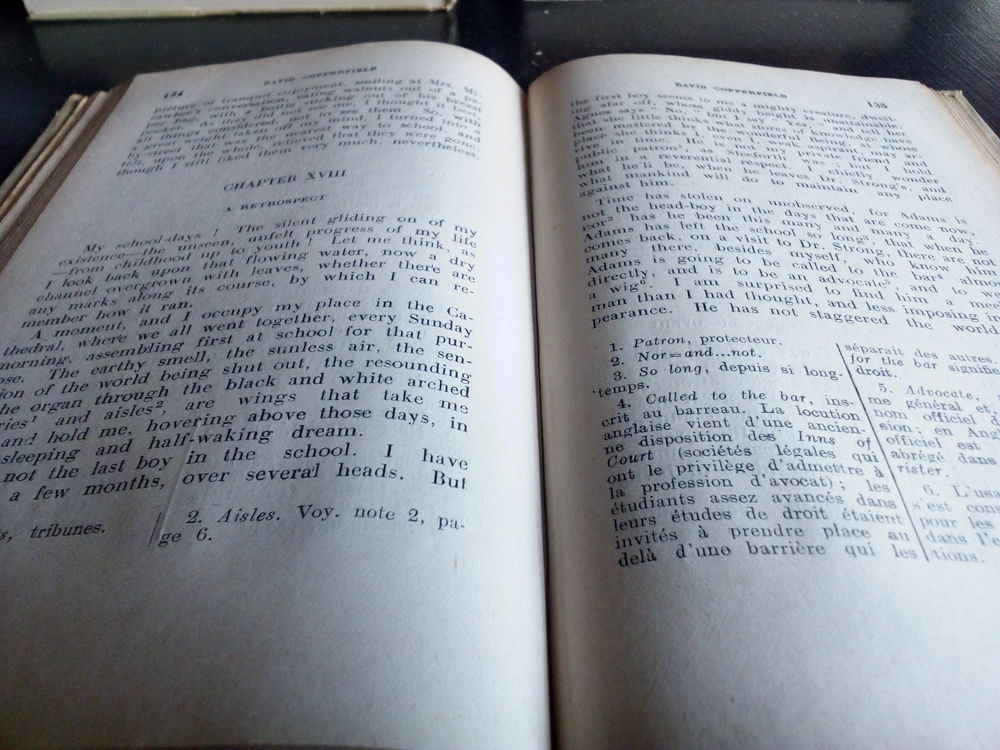 134
DAVID COPPERFIELD
picture of tranquil enjoyment, smiling at Mrs. Mi-
cawber's conversation, eating walnuts out of a pa-
per bag, with a bottle sticking out of his breast
pocket. As they did not see me, I thought it best,
all things considered, not to see them. So, with
a great weight taken off my mind, I turned into
by-street that was the nearest way to school, and
felt, upon the whole, relieved that they were gone:
though I still liked them very much, nevertheless.
CHAPTER XVIII
A RETROSPECT
My school-days ! The silent gliding on of my
existence—the unseen, unfelt progress of my life
—from childhood up to youth ! Let me think, as
I look back upon that flowing water, now a dry
channel overgrown with leaves, whether there are
any marks along its course, by which I can re-
member how it ran.
A moment, and I occupy my place in the Ca-
thedral, where we all went together, every Sunday
morning, assembling first at school for that pur-
ose. The earthy smell, the sunless air, the sen-
ion of the world being shut out, the resounding
he organ through the black and white arched
ries¹ and aisles², are wings that take me
and hold me, hovering above those days, in
sleeping and half-waking dream.
not the last boy in the school. I have
a few months, over several heads. But
s, tribunes.
2. Aisles. Voy. note 2, pa-
ge 6.
DAVID COPPERFIELD
135
the first boy seems to me a mighty creature, dwell-
ing afar off, whose giddy height is unattainable.
Agnes says "No," but I say "Yes," and tell her
that she little thinks what stores of knowledge have
been mastered by the wonderful Being, at whose
place she thinks I, even I, weak aspirant, may ar-
rive in time. He is not my private friend and
public patron¹, as Steerforth was; but I hold
him in a reverential respect. I chiefly wonder
what he'll be, when he leaves Dr. Strong's, and
what mankind will do to maintain any place
against him.
Time has stolen on unobserved, for Adams is
not the head-boy in the days that are come now,
nor² has he been this many and many a day.
Adams has left the school so long³, that when he
comes back, on a visit to Dr. Strong, there are not
many there, besides myself, who know him.
Adams is going to be called to the bar⁴ almos
directly, and is to be an advocate⁵, and to we
a wig⁶. I am surprised to find him a me
man than I had thought, and less imposing in
pearance. He has not staggered the world
1. Patron, protecteur.
2. Nor=and...not.
3. So long, depuis si long-
temps.
4. Called to the bar, ins-
crit au barreau. La locution
anglaise vient d'une ancien-
ne disposition des Inns of
Court (sociétés légales qui
ont le privilège d'admettre à
la profession d'avocat); les
étudiants assez avancés dans
leurs études de droit étaient
invités à prendre place au
delà d'une barrière qui les
séparait des autres.
for the bar signifie
droit.
5. Advocate,
me général et,
nom officiel d
sion; en Ang
officiel est
abrégé dans
rister.
6. L'usa
s'est con
pour les
dans l'e
tions.